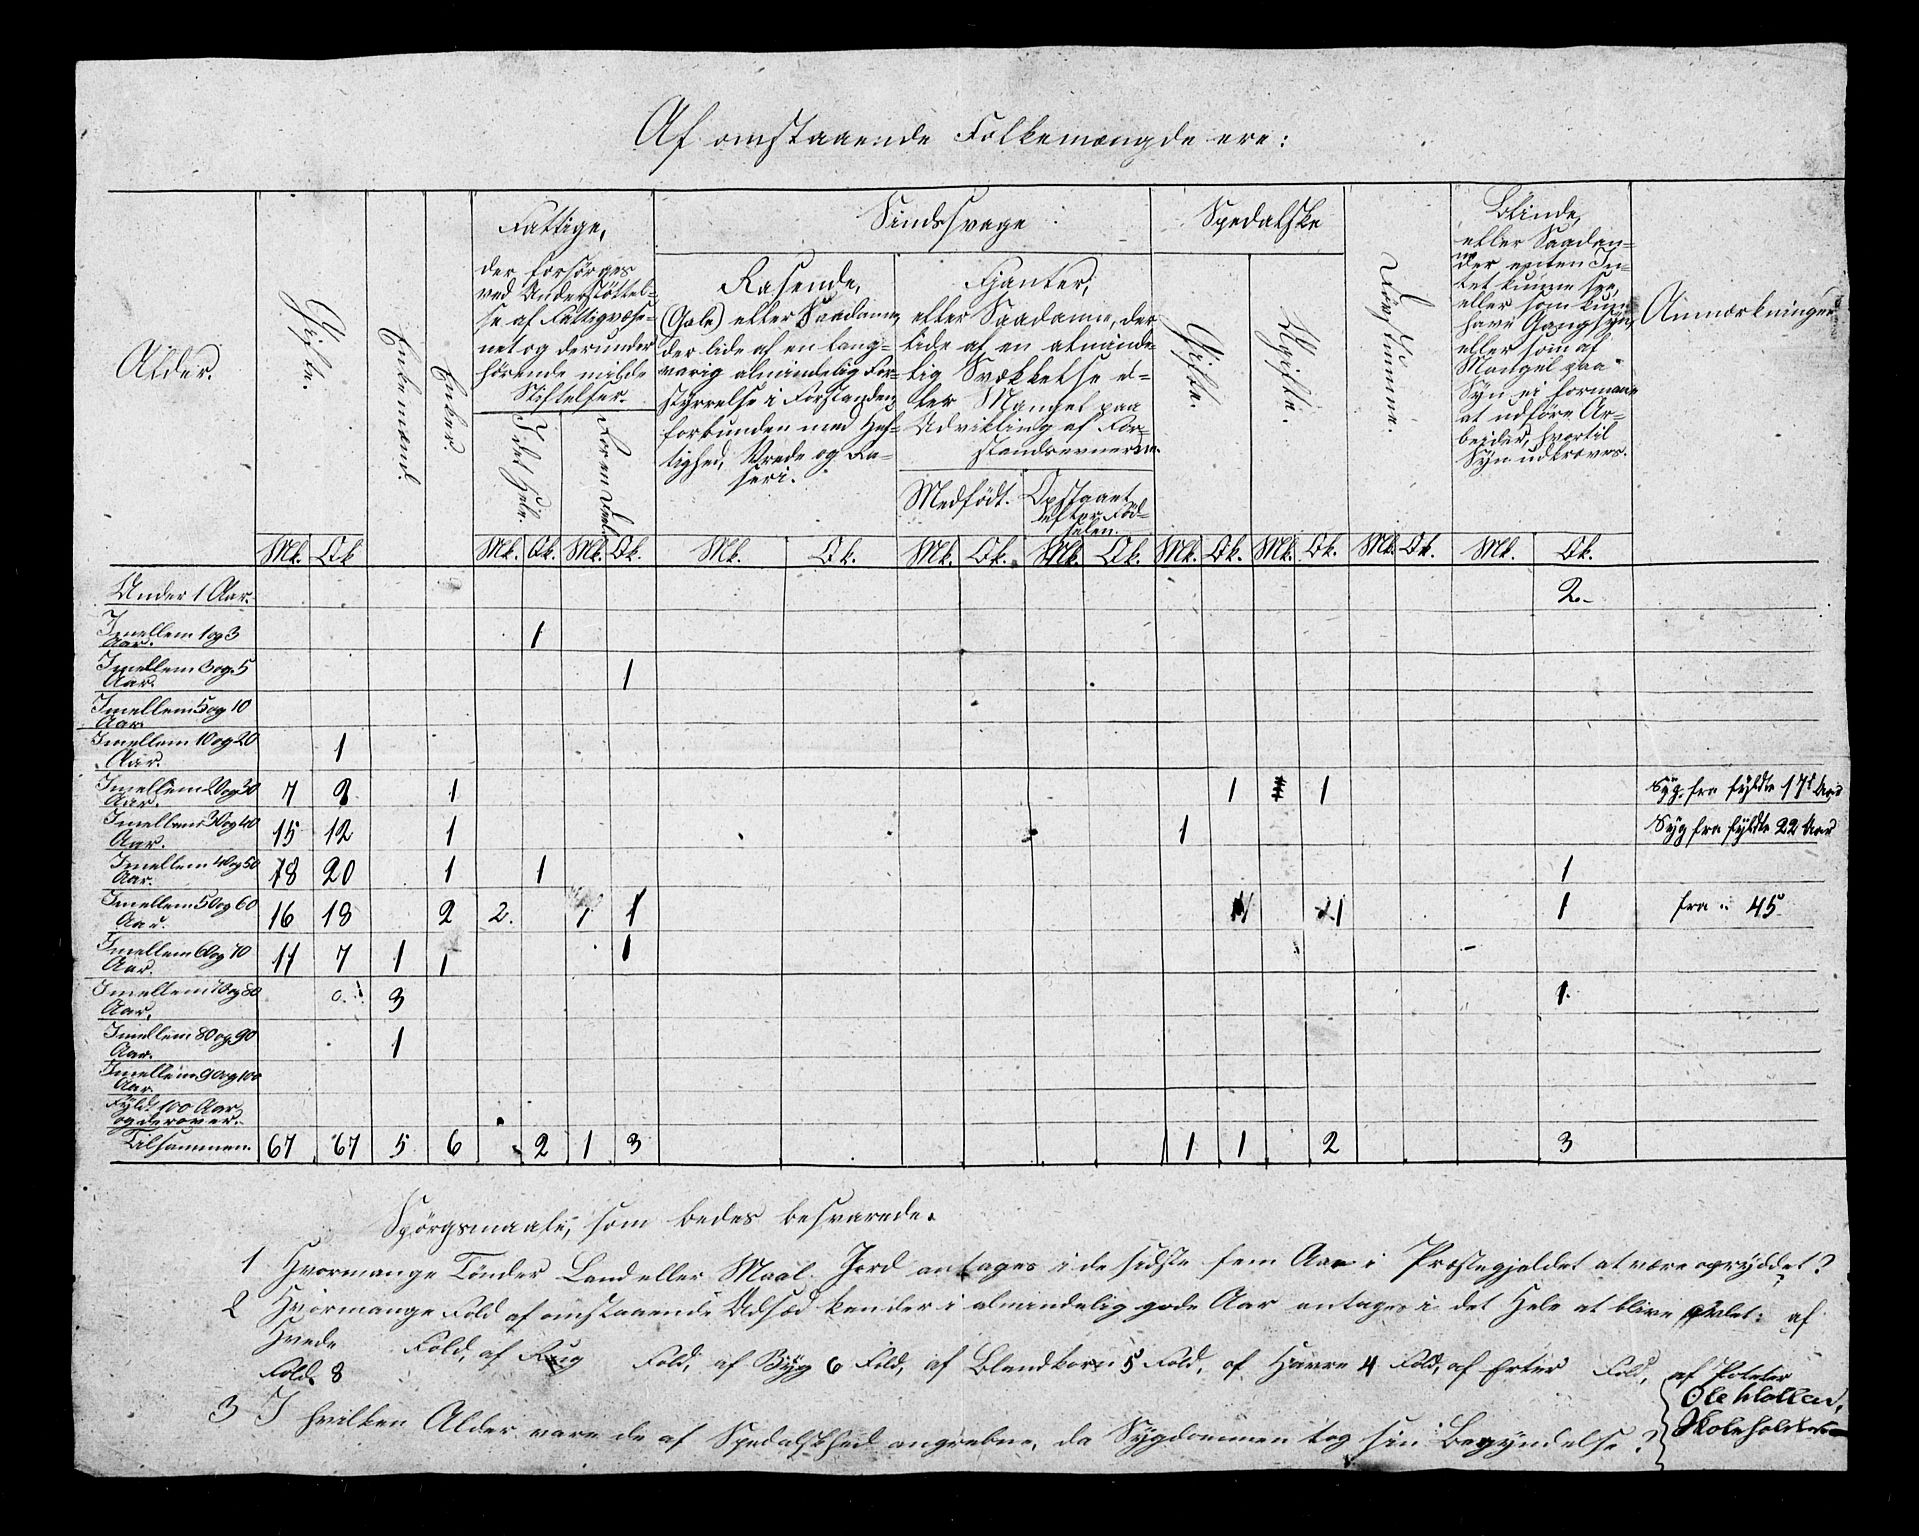 Af omstaaende Folkemængde ere:
Alder.
Gifte.
Enkemænd.
Enker.
Fattige,
der forsörges
ved Understöttel-
se af Fattigvæse-
net og derunder
hörende milde
Stiftelser.
I det Hele.
For en Deel
Sindssvage
Rasende,
(Gale) eller Saadanne,
der lide af en lang-
varig almindelig For-
styrrelse i Forstanden,
forbunden med Hef-
tighed, Vrede og Ra-
seri.
Fjanter,
eller Saadanne, der
lide af en alminde-
lig Svækkelse el-
ler Mangel paa
Udvikling af For-
standsevnerne.
Medfödt.
Opstaaet
efter Föd-
selen.
Spedalske
Gifte.
Ugifte.
Dövstumme.
Blinde,
eller Saadan-
ne, der enten In-
tet kunne see,
eller som kun
have Gangsyn,
eller som af
Mangel paa
Syn ei formaae
at udföre Ar-
beider, hvortil
Syn udkræves.
Anmærkninger
Mk. Qk Mk. Qk. Mk. Qk. Mk. Qk. Mk. Qk. Mk. Qk. Mk. Qk. Mk. Qk. Mk. Qk. Mk. Qk.
Under 1 Aar. 2.
Imellem 1 og 3
Aar. 1
Imellem 3 og 5
Aar. 1
Imellem 5 og 10
Aar.
Imellem 10 og 20
Aar. 1
Imellem 20 og 30
Aar. 7 9 1 1 1 Syg fra fyldte 17 Aar
Imellem 30 og 40
Aar. 15 12 1 1 Syg fra fyldte 22 Aar
Imellem 40 og 50
Aar. 18 20 1 1 1
Imellem 50 og 60
Aar. 16 18 2 2. 1 1 1 1 fra " 45
Imellem 60 og 70
Aar. 11 7 1 1 1
Imellem 70 og 80
Aar. 3 1.
Imellem 80 og 90
Aar. 1
Imellem 90 og 100
Aar.
Fyldt 100 Aar
og derover.
Tilsammen. 67 67 5 6 2 1 3 1 1 2 3
Spörgsmaale, som bedes besvarede.
1 Hvormange Tönder Land eller Maal Jord antages i de sidste fem Aar i Præstegjeldet at være opryddet?
2 Hvormange Fold af omstaaende Udsæd kan der i almindelig gode Aar antages i det Hele at blive avlet: af
Hvede Fold, af Rug Fold, af Byg 6 Fold, af Blandkorn 5 Fold, af Havre 4 Fold, af Erter Fold, af Poteter
Fold. 8
3 I hvilken Alder vare de af Spedalskhed angrebne, da Sygdommen tog sin Begyndelse?
Ole
Skoleholder